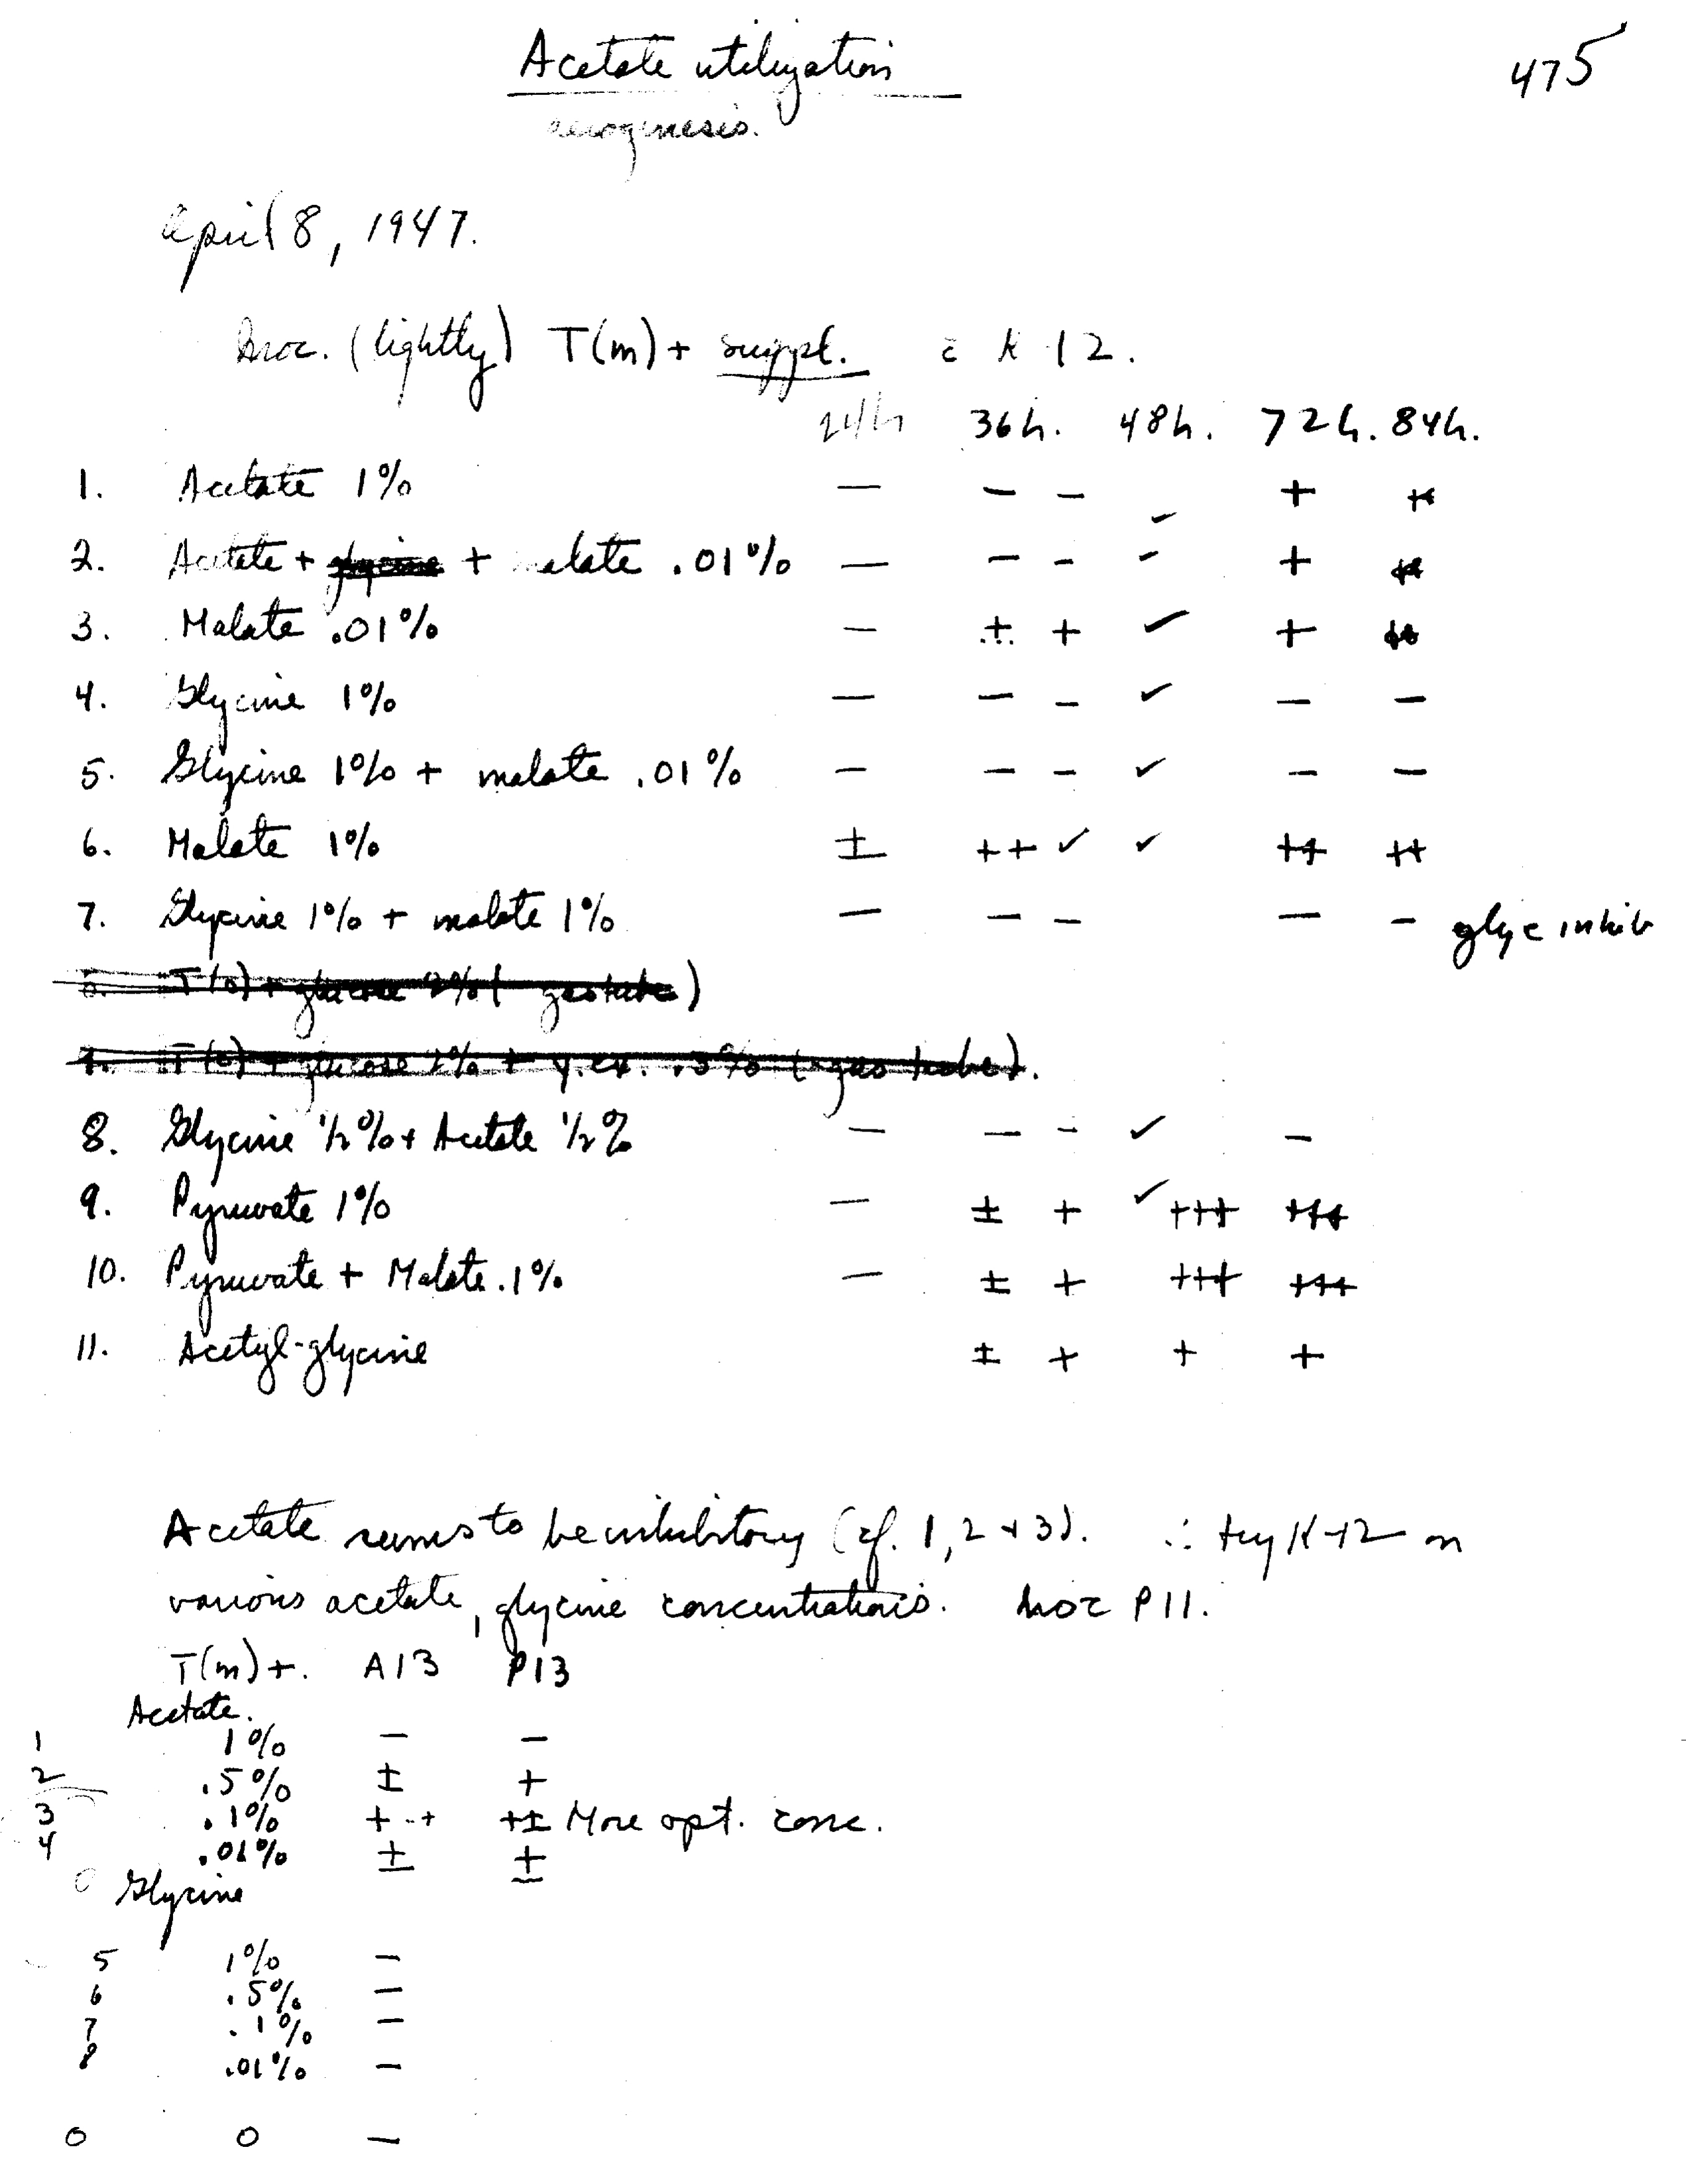 Acetate utilization 475
aerogenesis.
April 8, 1947.
Inoc. (lightly) T(m) + suppl. c̄ K-12.
24h 36h. 48h. 72h. 84h.
1. Acetate 1% — — – + +
2. Acetate + glycine + malate .01% — – – – +
3. Malate .01% — + + ✓ +
4. Glycine 1% — – – ✓ – –
5. Glycine 1% + malate .01% — – – ✓ – –
6. Malate 1% ± ++ ✓ ✓ ++ ++
7. Glycine 1% + malate 1% — – – — – glyc inhib
T(0) + glucose 2% (gas tube)
T(0) + glucose 2% + y.ex. .3% (gas tube).
8. Glycine ½% + Acetate ½% — — – ✓ –
9. Pyruvate 1% — ± + ✓ +++ +++
10. Pyruvate + Malate .1% — ± + +++ +++
11. Acetyl-glycine ± + + +
Acetate seems to be inhibitory (cf. 1, 2 + 3). ∴ try K-12 on
various acetate, glycine concentrations. Inoc P11.
T(m) +. A13 P13
Acetate.
1 1% — –
2 .5% ± +
3 .1% + + +± More opt. conc.
4 .01% ± ±
Glycine
5 1% –
6 .5% –
7 .1% –
8 .01% –
0 0 –